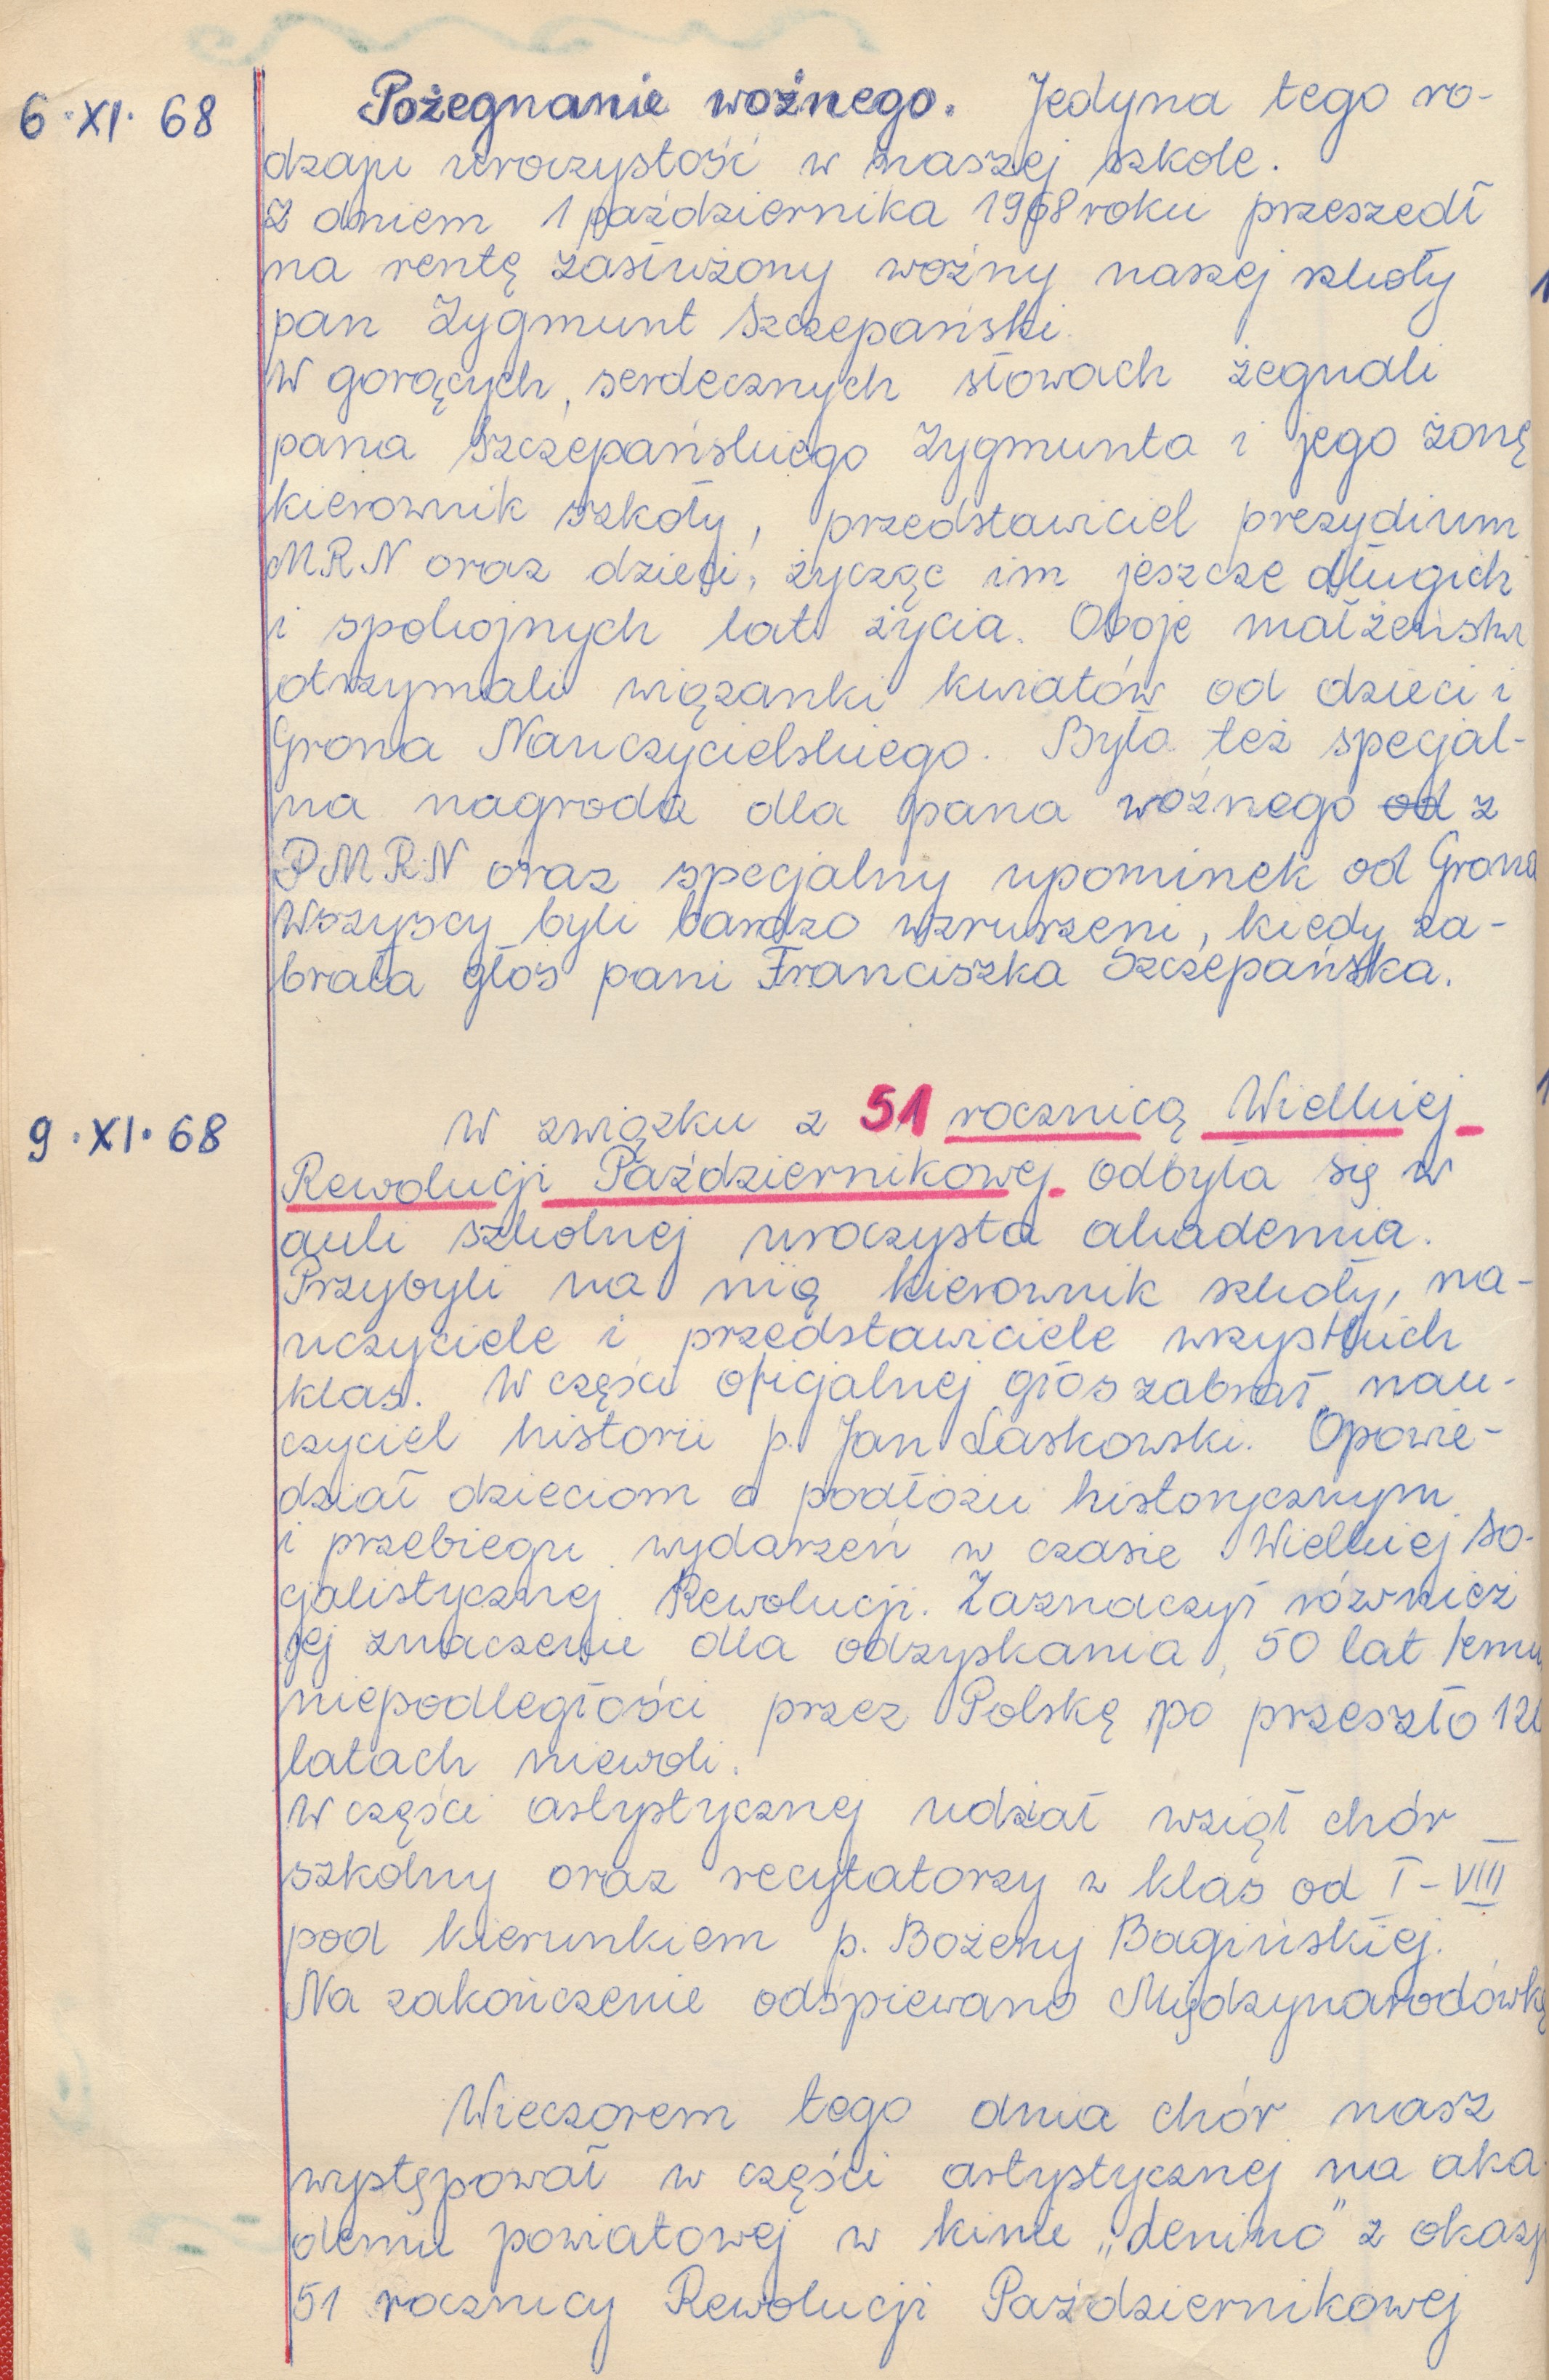 6.XI.68
Pożegnanie woźnego. Jedyna tego ro-
dzaju uroczystość w naszej szkole.
Z dniem 1 października 1968 roku przeszedł
na rentę zasłużony woźny naszej szkoły
pan Zygmunt Szczepański.
W gorących, serdecznych słowach żegnali
pana Szczepańskiego Zygmunta i jego żonę
kierownik szkoły, przedstawiciel prezydium
MRN oraz dzieci, życząc im jeszcze długich
i spokojnych lat życia. Oboje małżeństwo
otrzymali wiązanki kwiatów od dzieci i
Grona Nauczycielskiego. Była też specjal-
na nagroda dla pana woźnego od z
P.M.R.N oraz specjalny upominek od Grona
Wszyscy byli bardzo wzruszeni, kiedy za-
brała głos pani Franciszka Szczepańska.
9.XI.68
W związku z 51 rocznicą Wielkiej
Rewolucji Październikowej odbyła się w
auli szkolnej uroczysta akademia.
Przybyli na nią kierownik szkoły, na-
uczyciele i przedstawiciele wszystkich
klas. W części oficjalnej głos zabrał nau-
czyciel historii p. Jan Laskowski. Opowie-
dział dzieciom o podłożu historycznym
i przebiegu wydarzeń w czasie Wielkiej So-
cjalistycznej Rewolucji. Zaznaczył również
jej znaczenie dla odzyskania, 50 lat temu
niepodległości przez Polskę po przeszło 120
latach niewoli.
W części artystycznej udział wziął chór
szkolny oraz recytatorzy z klas od I-VIII
pod kierunkiem p. Bożeny Bagińskiej.
Na zakończenie odśpiewano Międzynarodówkę
Wieczorem tego dnia chór nasz
występował w części artystycznej na aka-
demii powiatowej w kinie „Lenino" z okazji
51 rocznicy Rewolucji Październikowej